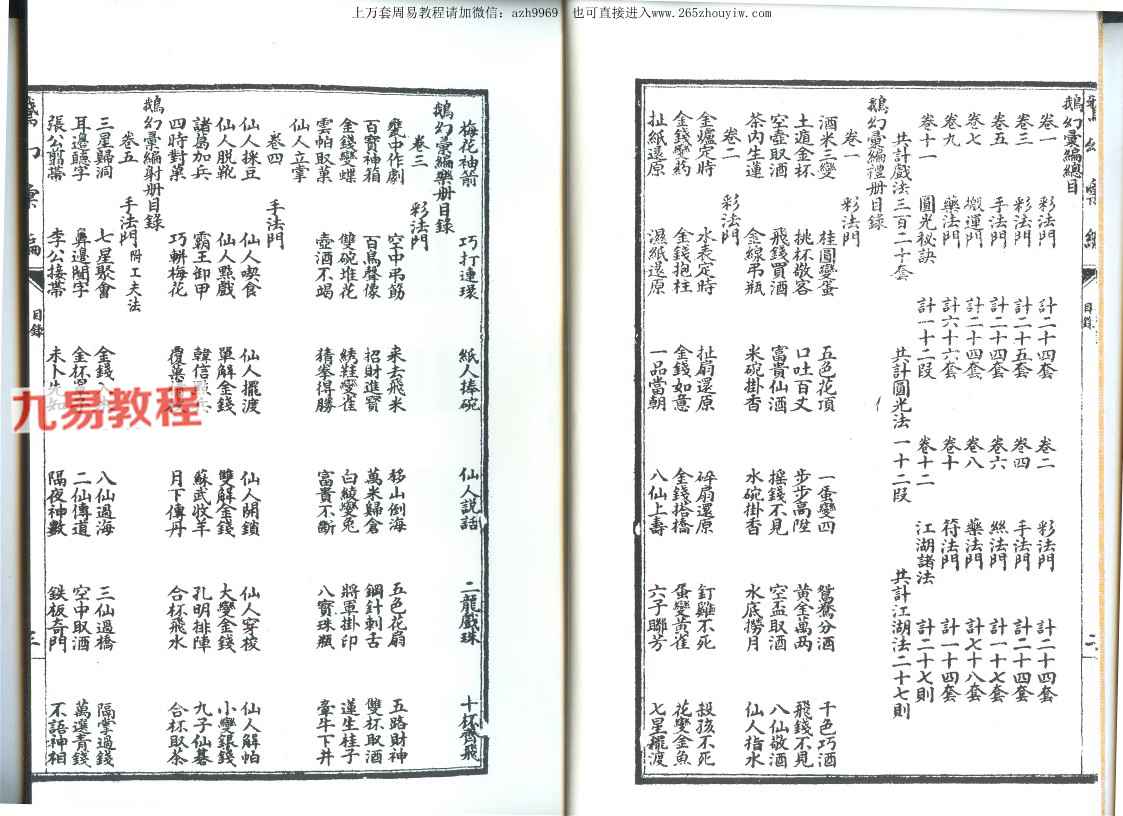 上万套周易教程请加微信：azh9969 也可直接进入www.265zhouyiw.com
目錄 二
鵝幻彙編總目
卷一 彩法門 計二十四套 卷二 彩法門 計二十四套
卷三 彩法門 計二十五套 卷四 手法門 計二十四套
卷五 手法門 計二十四套 卷六 絲法門 計一十七套
卷七 搬運門 計二十四套 卷八 藥法門 計七十八套
卷九 藥法門 計六十六套 卷十 符法門 計一十四套
卷十一 圓光秘訣 計一十二段 卷十二 江湖諸法 計二十七則
共計戲法三百二十套 共計圓光法一十二段 共計江湖法二十七則
鵝幻彙編禮册目錄
卷一 彩法門
酒米三變 桂圓變蛋 五色花頂 一蛋變四 鴛鴦分酒 千色巧酒
土遁金杯 挑杯敬客 口吐百丈 步步高陞 黃金萬兩 飛錢不見
空壺取酒 飛錢買酒 富貴仙酒 搖錢不見 空盃取酒 八仙敬酒
茶內生蓮 金線弔瓶 米碗掛香 水碗掛香 水底撈月 仙人指水
卷二 彩法門
金爐定時 水表定時 扯扇還原 碎扇還原 釘雞不死 殺孩不死
金錢變葯 金錢抱柱 金錢如意 金錢搭橋 蛋變黃雀 花變金魚
扯紙還原 濕紙還原 一品當朝 八仙上壽 六子聯芳 七星擺渡
梅花袖箭 巧打連環 紙人捧碗 仙人說話 二龍戲珠 十杯齊飛
鵝幻彙編樂册目錄
卷三 彩法門
甕中作劇 空中弔筋 來去飛米 移山倒海 五色花扇 五路財神
百寶神箱 百鳥聲像 招財進寶 萬米歸倉 鋼針刺舌 雙杯取酒
金錢變蝶 雙碗堆花 綉鞋變雀 白綾變兎 將軍掛印 蓮生桂子
雲帕取菓 壺酒不竭 猜拳得勝 富貴不斷 八寶珠瓶 牽牛下井
仙人立掌
卷四 手法門
仙人採豆 仙人喫食 仙人擺渡 仙人開鎖 仙人穿梭 仙人解帕
仙人脫靴 仙人點戲 單解金錢 雙解金錢 大變金錢 小變銀錢
諸葛加兵 霸王卸甲 韓信 蘇武牧羊 孔明排陣 九子仙碁
四時對菓 巧斛梅花 月下傳丹 合杯飛水 合杯取茶
鵝幻彙編射册目錄
卷五 手法門 附工夫法
三星歸洞 七星聚會 金錢 八仙過海 三仙過橋 隔掌過錢
耳邊聽字 鼻邊聞字 金杯 二仙傳道 空中取酒 萬選青錢
張公剪帶 李公接帶 未卜先知 隔夜神數 鉄板奇門 不語神相
幻彙編 目錄 三
九易教程